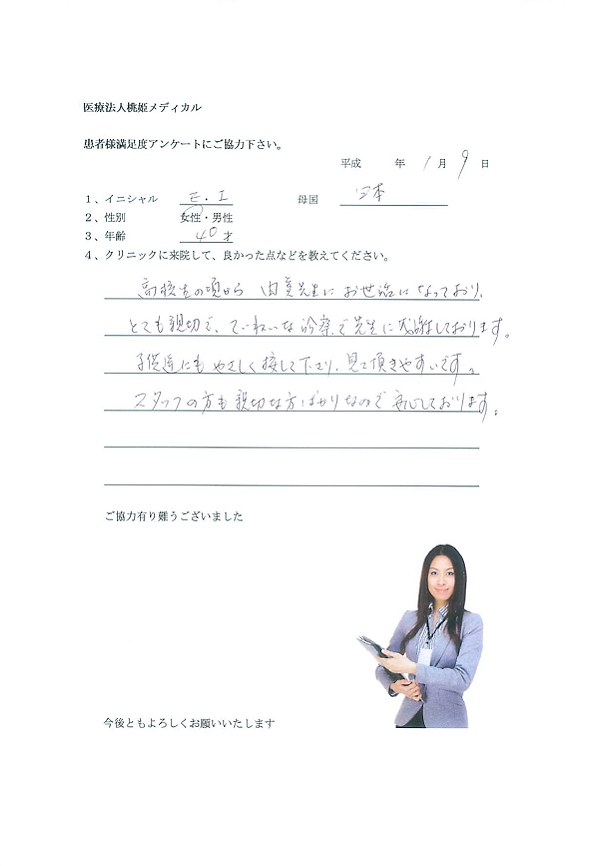 医療法人桃姫メディカル
患者様満足度アンケートにご協力下さい。
平成　　年 1 月 9 日
1、イニシャル　E．I　　母国　日本
2、性別　女性・男性
3、年齢　40才
4、クリニックに来院して、良かった点などを教えてください。
高校生の頃から 由美先生に お世話に なっており、
とても親切で、ていねいな診察で先生に感謝しております。
子供達にも やさしく接して下さり、見て頂きやすいです。
スタッフの方も親切な方ばかりなので 安心しております。
ご協力有り難うございました
今後ともよろしくお願いいたします